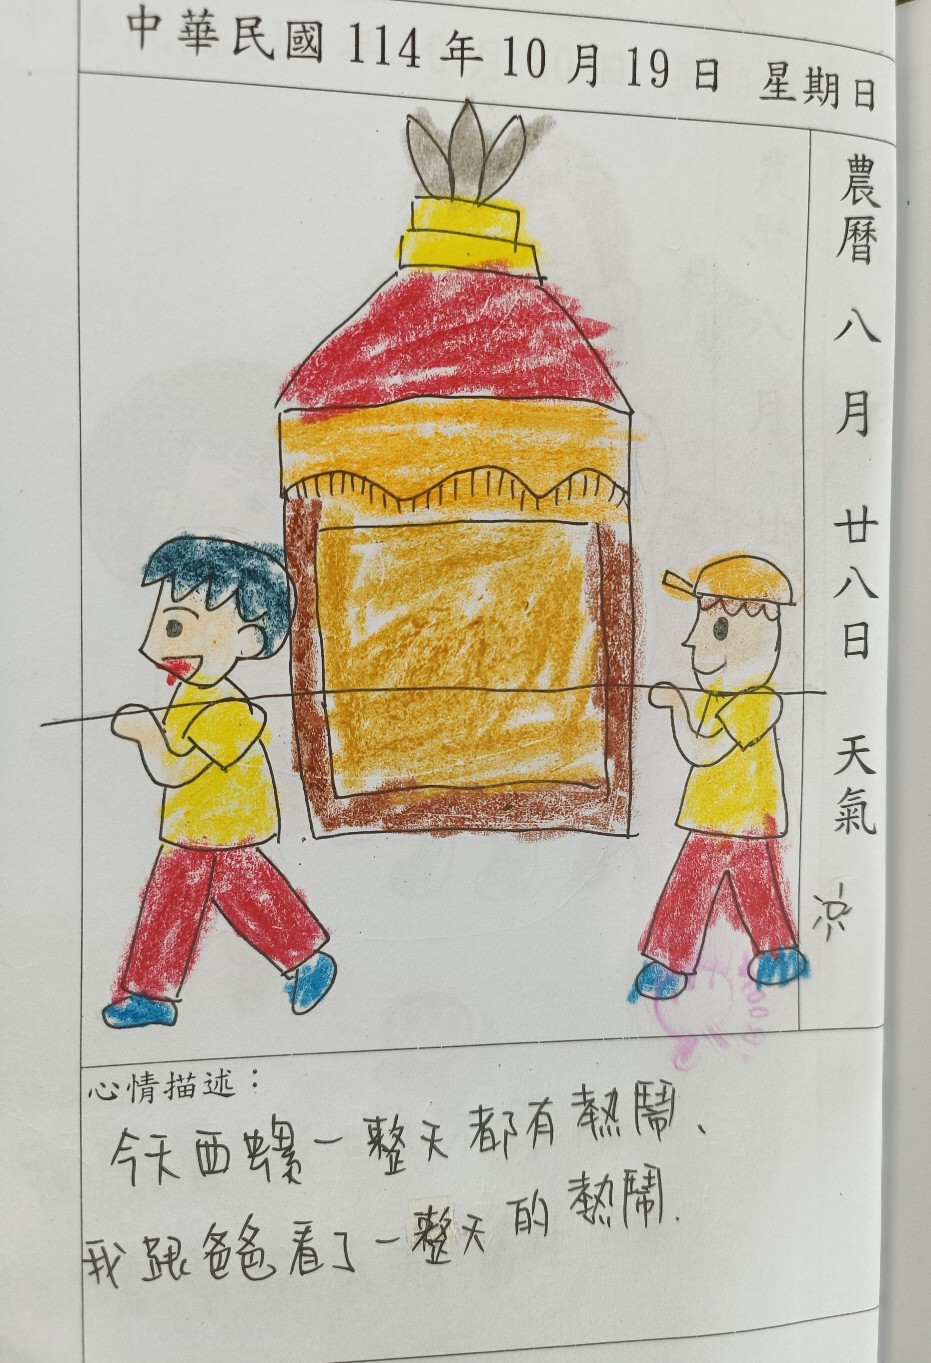 中華民國 114 年 10 月 19 日 星期日
農曆 八月 廿八日 天氣 涼
心情描述：
今天西螺一整天都有熱鬧、
我跟爸爸看了一整天的熱鬧.